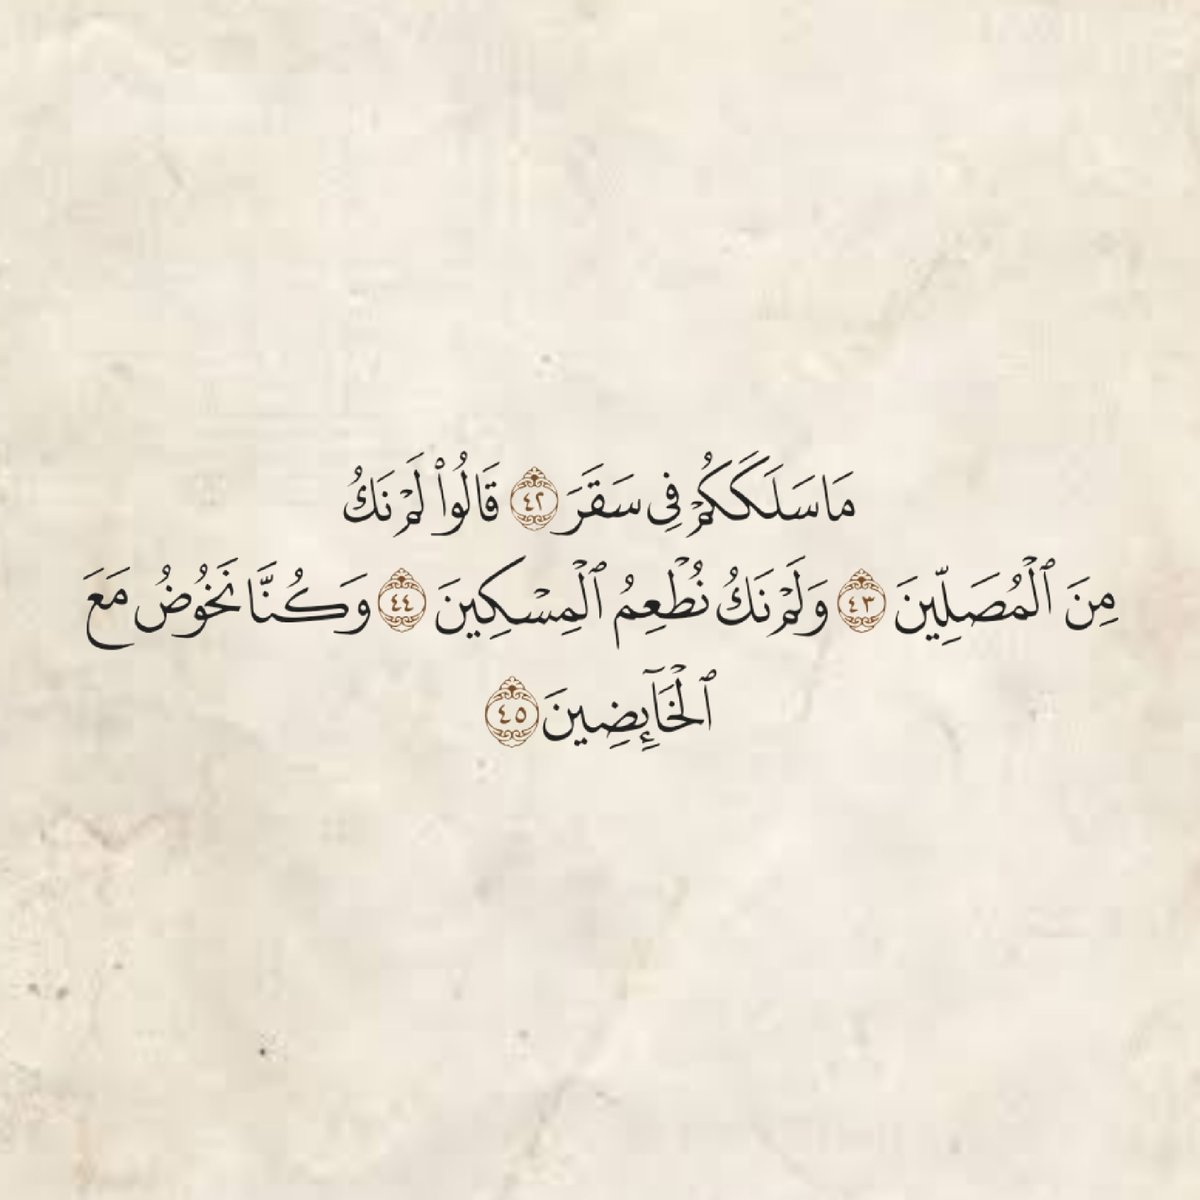 مَا سَلَكَكُمْ فِى سَقَرَ ٤٢ قَالُوا۟ لَمْ نَكُ
مِنَ ٱلْمُصَلِّينَ ٤٣ وَلَمْ نَكُ نُطْعِمُ ٱلْمِسْكِينَ ٤٤ وَكُنَّا نَخُوضُ مَعَ
ٱلْخَآئِضِينَ ٤٥